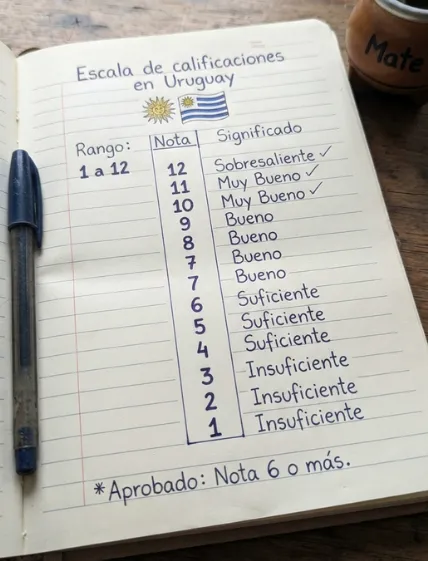 Escala de calificaciones
en Uruguay
Rango:
1 a 12
Nota Significado
12 Sobresaliente ✓
11 Muy Bueno ✓
10 Muy Bueno ✓
9 Bueno
8 Bueno
7 Bueno
7 Bueno
6 Suficiente
5 Suficiente
4 Suficiente
3 Insuficiente
2 Insuficiente
1 Insuficiente
*Aprobado: Nota 6 o más.
Mate